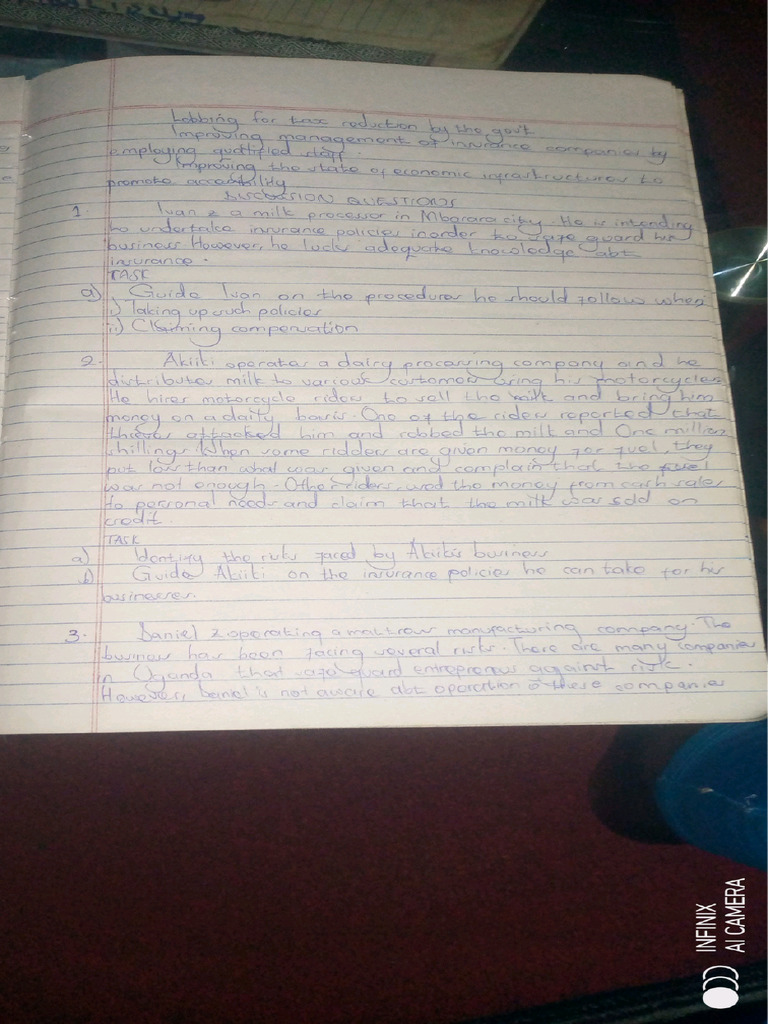 Lobbing for tax reduction by the gov't
Improving management of insurance companies by
employing qualified staff.
Improving the state of economic infrastructures to
promote accesibility
DISCUSSION QUESTIONS
1. Ivan is a milk processor in Mbarara city. He is intending
to undertake insurance policies inorder to safe guard his
business. However, he lacks adequate knowledge abt
insurance.
TASK
a) Guide Ivan on the procedures he should follow when;
i) Taking up such policies
ii) Claiming compensation
2. Akiiki operates a dairy processing company and he
distributes milk to various customers using his motorcycles.
He hires motorcycle riders to sell the milk and bring him
money on a daily basis. One of the riders reported that
thieves attacked him and robbed the milk and One million
shillings. When some ridders are given money for fuel, they
put less than what was given and complain that the fuel
was not enough. Other riders used the money from cash sales
to personal needs and claim that the milk was sold on
credit.
TASK
a) Identify the risks faced by Akiiki's business
b) Guide Akiiki on the insurance policies he can take for his
businesses.
3. Daniel is operating a mattress manufacturing company. The
business has been facing several risks. There are many companies
in Uganda that safe guard entrepreneurs against risk.
However, Daniel is not aware abt operation of these companies
INFINIX
AI CAMERA